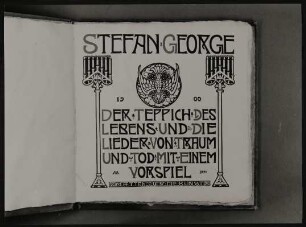 STEFAN·GEORGE
19 00
DER·TEPPICH·DES
LEBENS·UND·DIE
LIEDER·VON·TRAUM
UND·TOD·MIT·EINEM
VORSPIEL